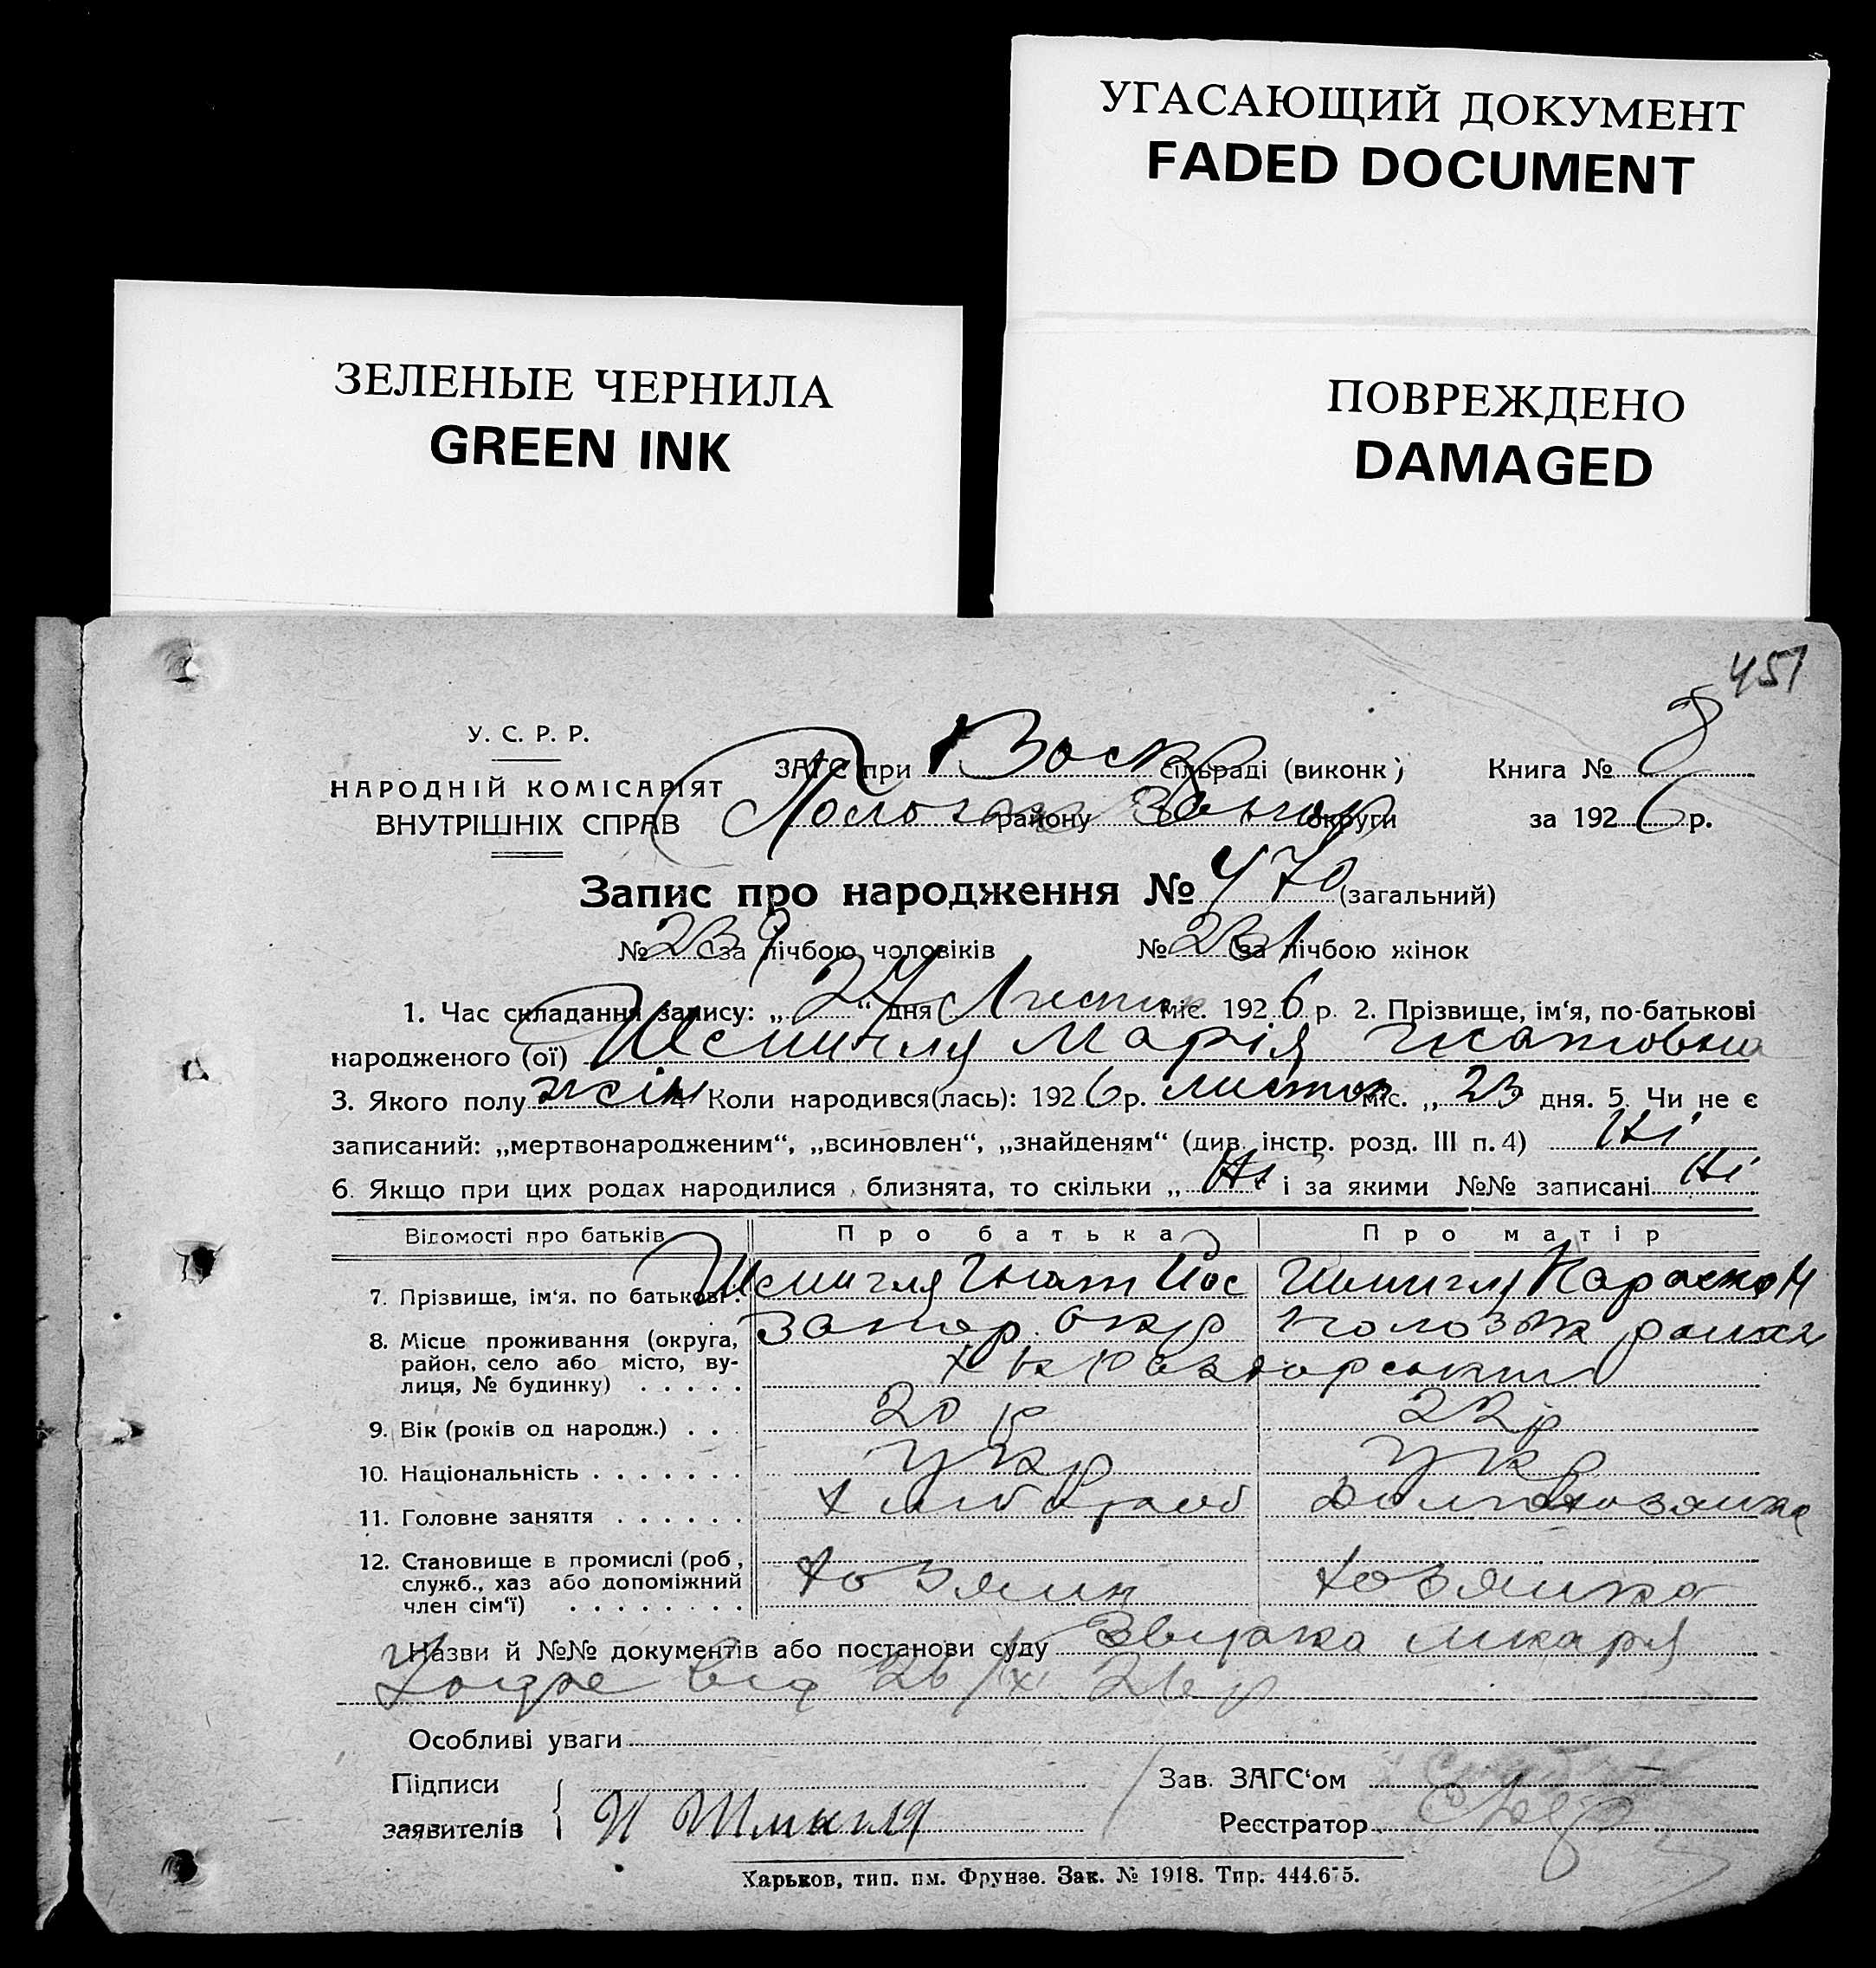 УГАСАЮЩИЙ ДОКУМЕНТ
FADED DOCUMENT
ЗЕЛЕНЫЕ ЧЕРНИЛА
GREEN INK
ПОВРЕЖДЕНО
DAMAGED
451
У. С. Р. Р.
НАРОДНІЙ КОМІСАРІЯТ
ВНУТРІШНІХ СПРАВ
ЗАГС при Воск сільраді (виконк) Книга № 8
району Запор округи за 1926 р.
Запис про народження № 470 (загальний)
№ 239 за лічбою чоловіків № 231 за лічбою жінок
1. Час складання запису: „27“ дня Листоп міс. 1926 р. 2. Прізвище, ім‘я, по-батькові
народженого (ої) Марія Гнатовна
3. Якого полу жін 4 Коли народився(лась): 1926 р. листоп міс. „23 дня. 5. Чи не є
записаний: „мертвонародженим“, „всиновлен“, „знайденям“ (див. інстр. розд. III п. 4) Ні
6. Якщо при цих родах народилися близнята, то скільки „Ні і за якими №№ записані Ні
Відомості про батьків Про батька Про матір
7. Прізвище, ім‘я. по батькові. Гнат Йос
8. Місце проживання (округа, Запор. окр
район, село або місто, ву-
лиця, № будинку)
9. Вік (років од народж.) 20 р 22 р
10. Національність укр укр
11. Головне заняття хлібороб домохозяйка
12. Становище в промислі (роб,
служб., хаз або допоміжний хозяин хозяйка
член сім‘ї)
Назви й №№ документів або постанови суду лікаря
від 26/XI 26 р
Особливі уваги
Підписи Зав. ЗАГС‘ом
заявителів Реєстратор
Харьков, тип. им. Фрунзе. Зак. № 1918. Тир. 444.675.